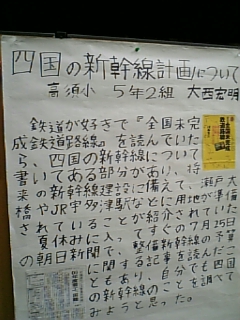 四国の新幹線計画について
高須小 5年2組 大西宏明
鉄道が好きで『全国未完
成鉄道路線』を読んでいた
ら、四国の新幹線について
書いてある部分があり、将
来の新幹線建設に備えて、瀬戸大
橋やJR宇多津駅などに用地が準備
されていることが紹介されていた。
夏休みに入ってすぐの7月15日
の朝日新聞で、整備新幹線の予算
に関する記事を読んだこ
ともあり、自分でも四国
の新幹線のことを調べて
みようと思った。